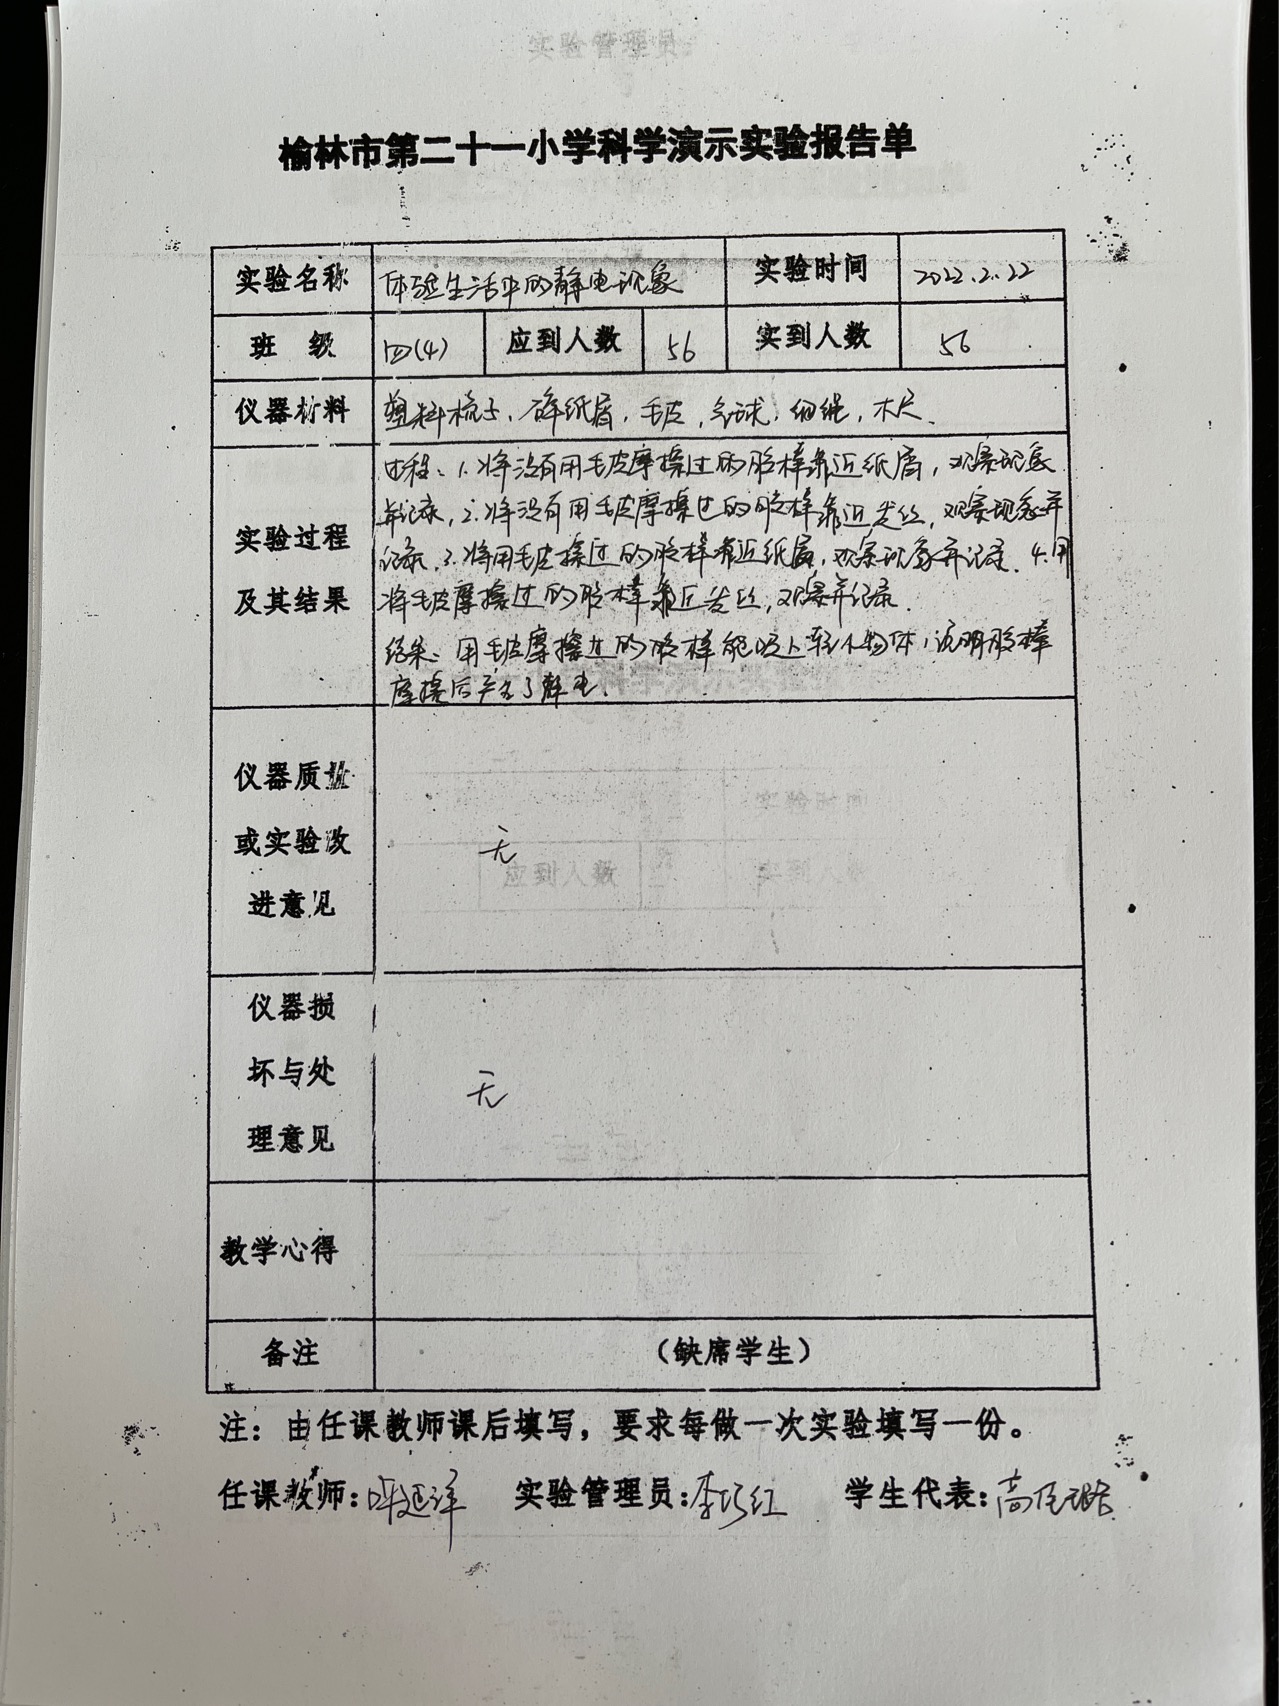 榆林市第二十一小学科学演示实验报告单
实验名称 体验生活中的静电现象 实验时间 2022.2.22
班 级 四(4) 应到人数 56 实到人数 56
仪器材料 塑料梳子、碎纸屑、毛皮、气球、细绳、木尺.
实验过程
及其结果
过程:1.将没有用毛皮摩擦过的胶棒靠近纸屑,观察现象
并记录,2.将没有用毛皮摩擦过的胶棒靠近发丝,观察现象并
记录.3.将用毛皮擦过的胶棒靠近纸屑,观察现象并记录.4.用
将毛皮摩擦过的胶棒靠近发丝,观察并记录.
结果:用毛皮摩擦过的胶棒能吸上轻小物体,说明胶棒
摩擦后产生了静电.
仪器质量
或实验改
进意见
无
仪器损
坏与处
理意见
无
教学心得
备注 (缺席学生)
注:由任课教师课后填写,要求每做一次实验填写一份。
任课教师: 实验管理员:李巧红 学生代表: